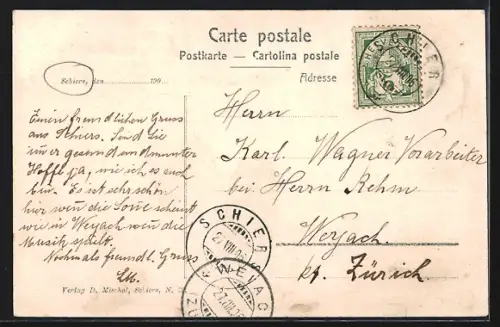 Carte postale
Postkarte — Cartolina postale
Adresse
Schiers, den 190
SCHIERS
Einen freundlichen Gruss
aus Schiers. Send Sie
imer gesund und munter
Hoffe ja, wie ich es auch
bin. Es ist sehr schön
hier wen die Sone scheint
wie in Weyach wen die
Musik spielt.
Nochmals freundl. Gruss
Herrn
Karl Wagner Vorarbeiter
bei Herrn Rehm
Weyach.
Kt. Zürich
SCHIERS
WEYACH
Verlag D. Mischol, Schiers, N.